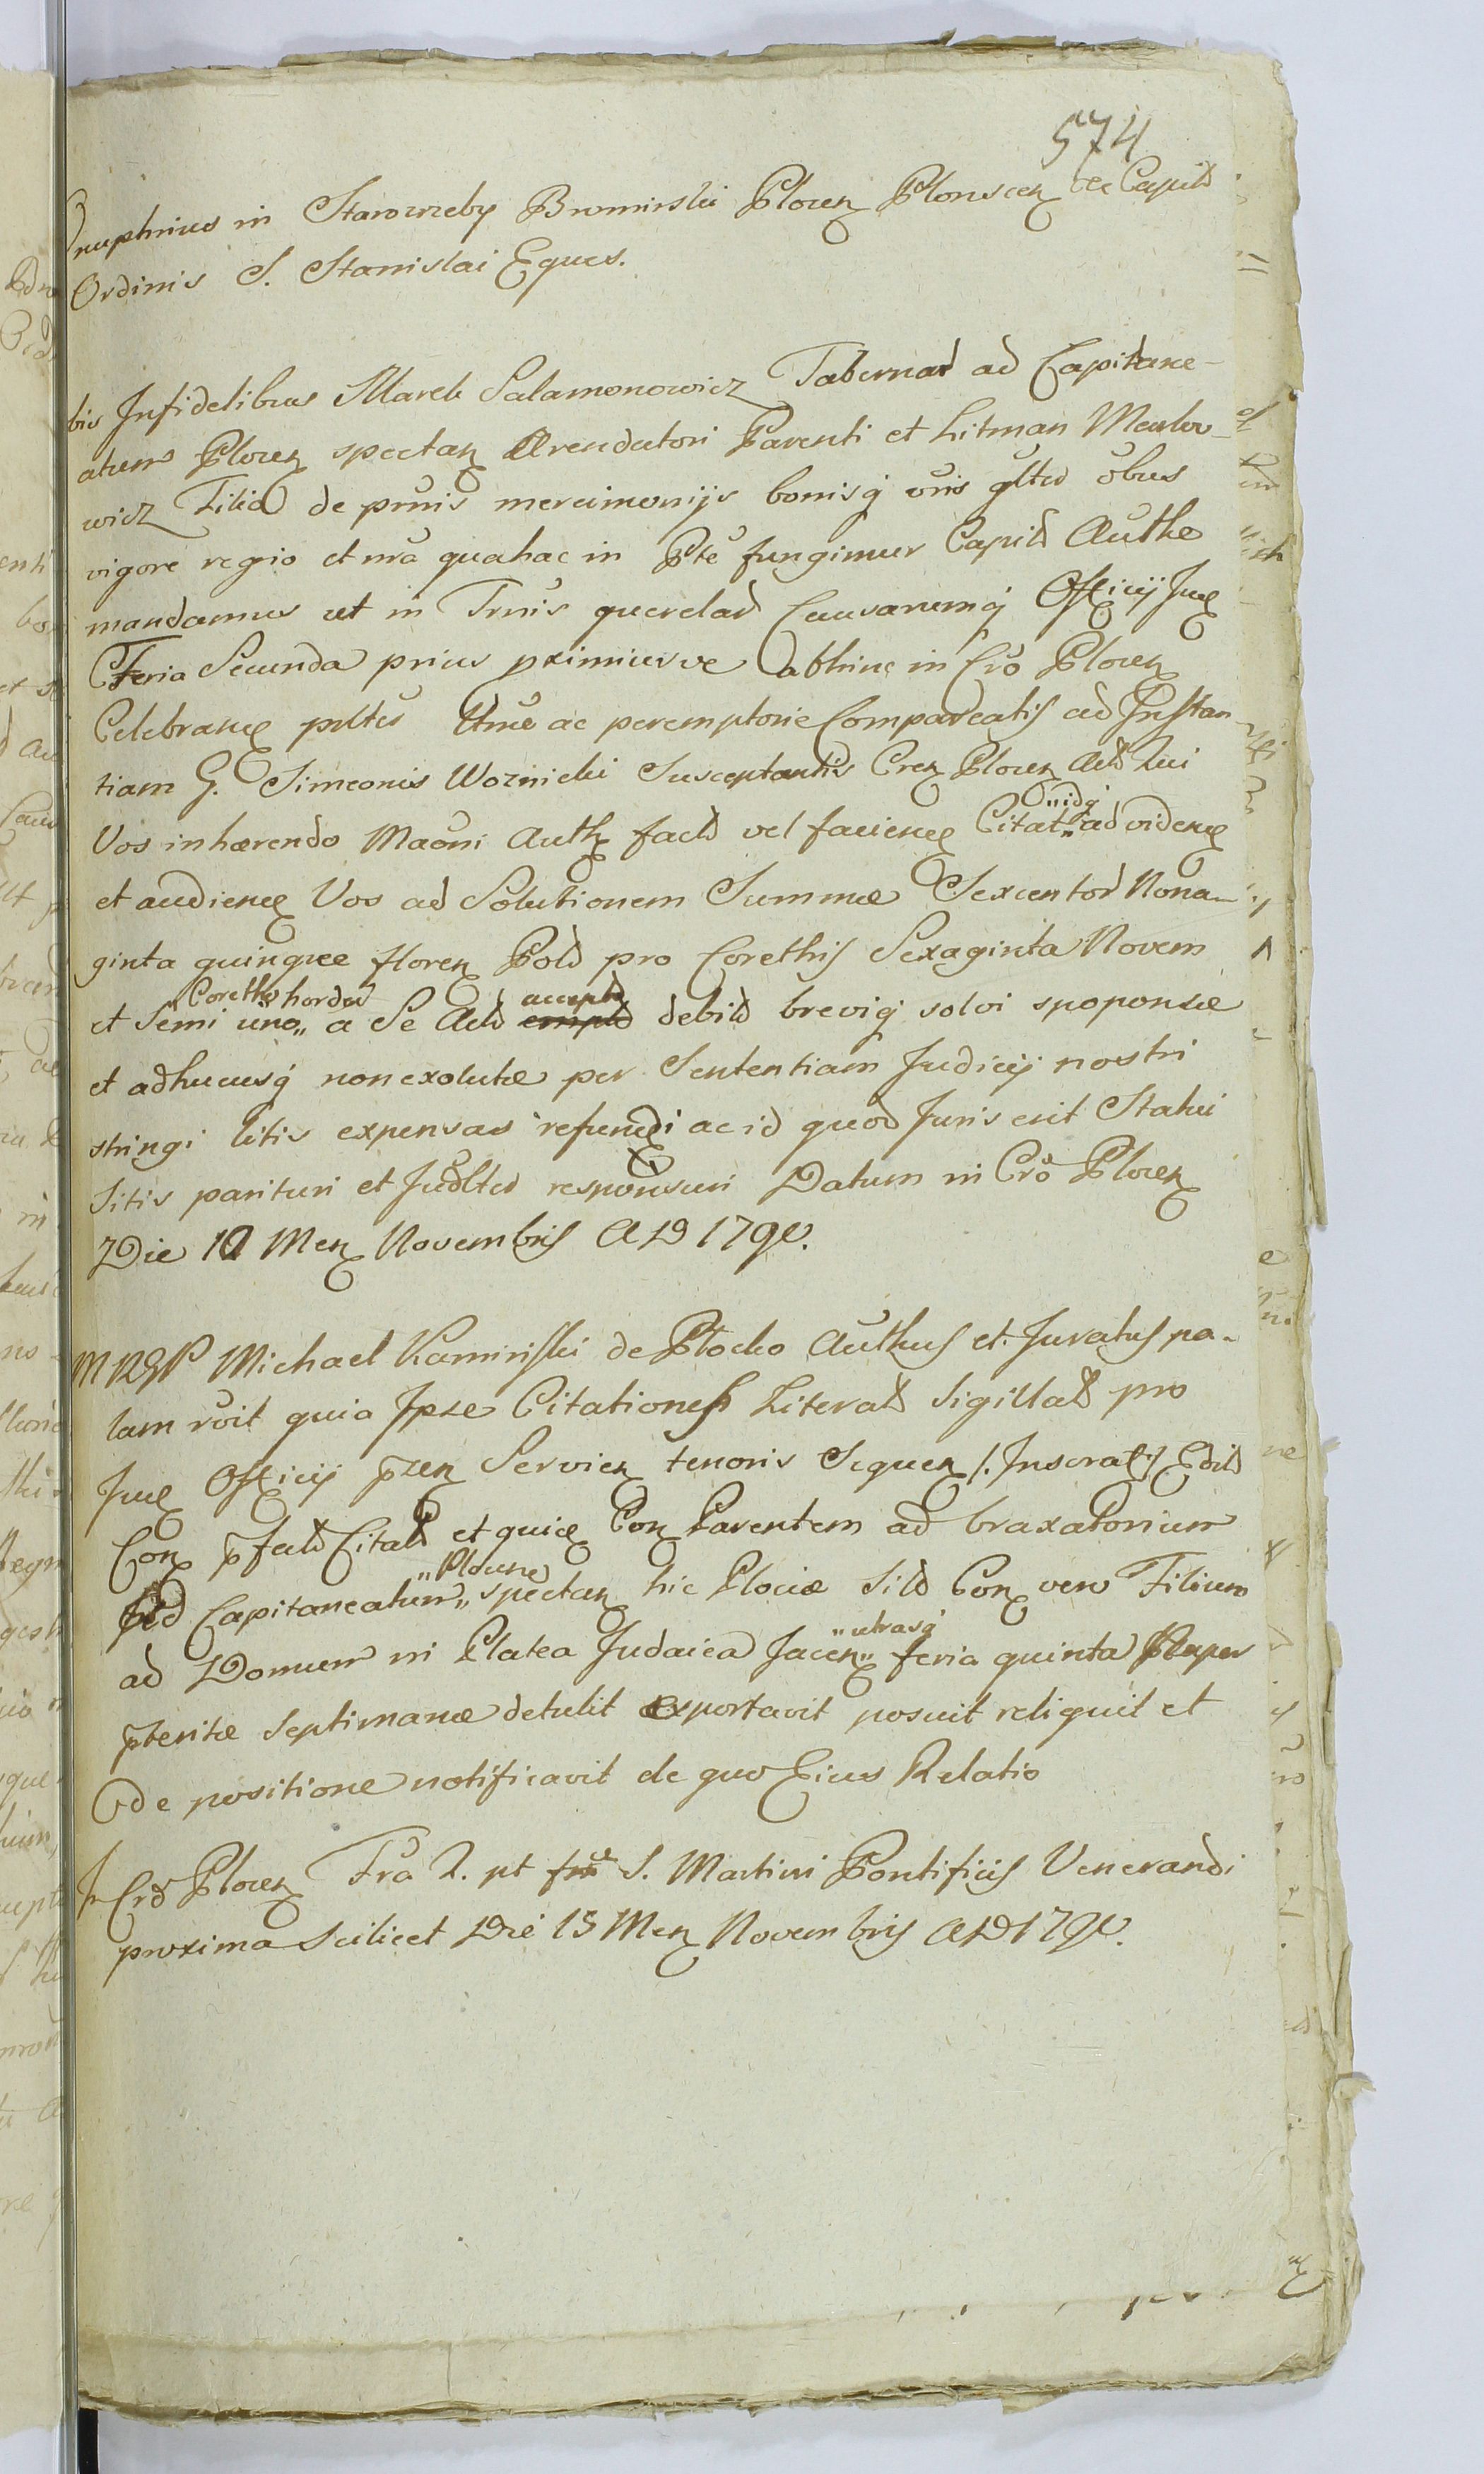 574
Onuphrius in Starozreby Bromirski Plocen Plonscen &c Capit
Ordinis S. Stanislai Eques.
bis Infidelibus Marek Salamonowicz Tabernar ad Capitane-
atum Plocen spectan Arendatori Parenti et Litman Marko-
wicz Filio de prnis mercimonijs bonisq vris gltr obus
vigore regio et nra qua hac in Pte fungimur Capit Authe
mandamus ut in Trnis querelar Causarumq Officij Jud
Feria Secunda prius pximiusve abhinc in Cro Plocen
Celebrand pltr ttme ac peremptorie Compareatis ad Instan
tiam G. Simeonis Woznicki Susceptantis Cren Plocen Act Qui
Vos inhærendo Maoni Auth fact vel faciend Citat „idq„ ad vidend
et audiend Vos ad Solutionem Summæ Sexcentor Nona-
ginta quinque floren Pol pro Corethis Sexaginta Novem
et Semi uno „Coreth hordei„ a Se Act empt accept debit breviq solvi sponsæ
et adhucusq non exolutæ per Sententiam Judicij nostri
stringi litis expensas refundi ac id quod Juris erit Statui
Sitis parituri et Judltr responsuri Datum in Cro Plocen
Die 10 Men Novembris AD 1790.
MRGP Michael Kaminski de Plocko Authus et Juratus pa-
lam rvit quia Ipse Citationes Literat Sigillat pro
Jud Officij pren Servien tenoris Sequen /. Inserat ./ Edit
Con pfat Citat et quid Con Parentem ad braxatorium
ad Capitaneatum „Plocen„ spectan hic Plociæ Sit Con vero Filium
ad Domum in Platea Judaica Jacen „utrasq„ feria quinta nuper
pteritæ Septimanæ detulit exportavit posuit reliquit et
de positione notificavit de quo Eius Relatio
In Cro Plocen Fra 2. pt fm S. Martini Pontificis Venerandi
proxima scilicet Die 15 Men Novembris AD 1790.